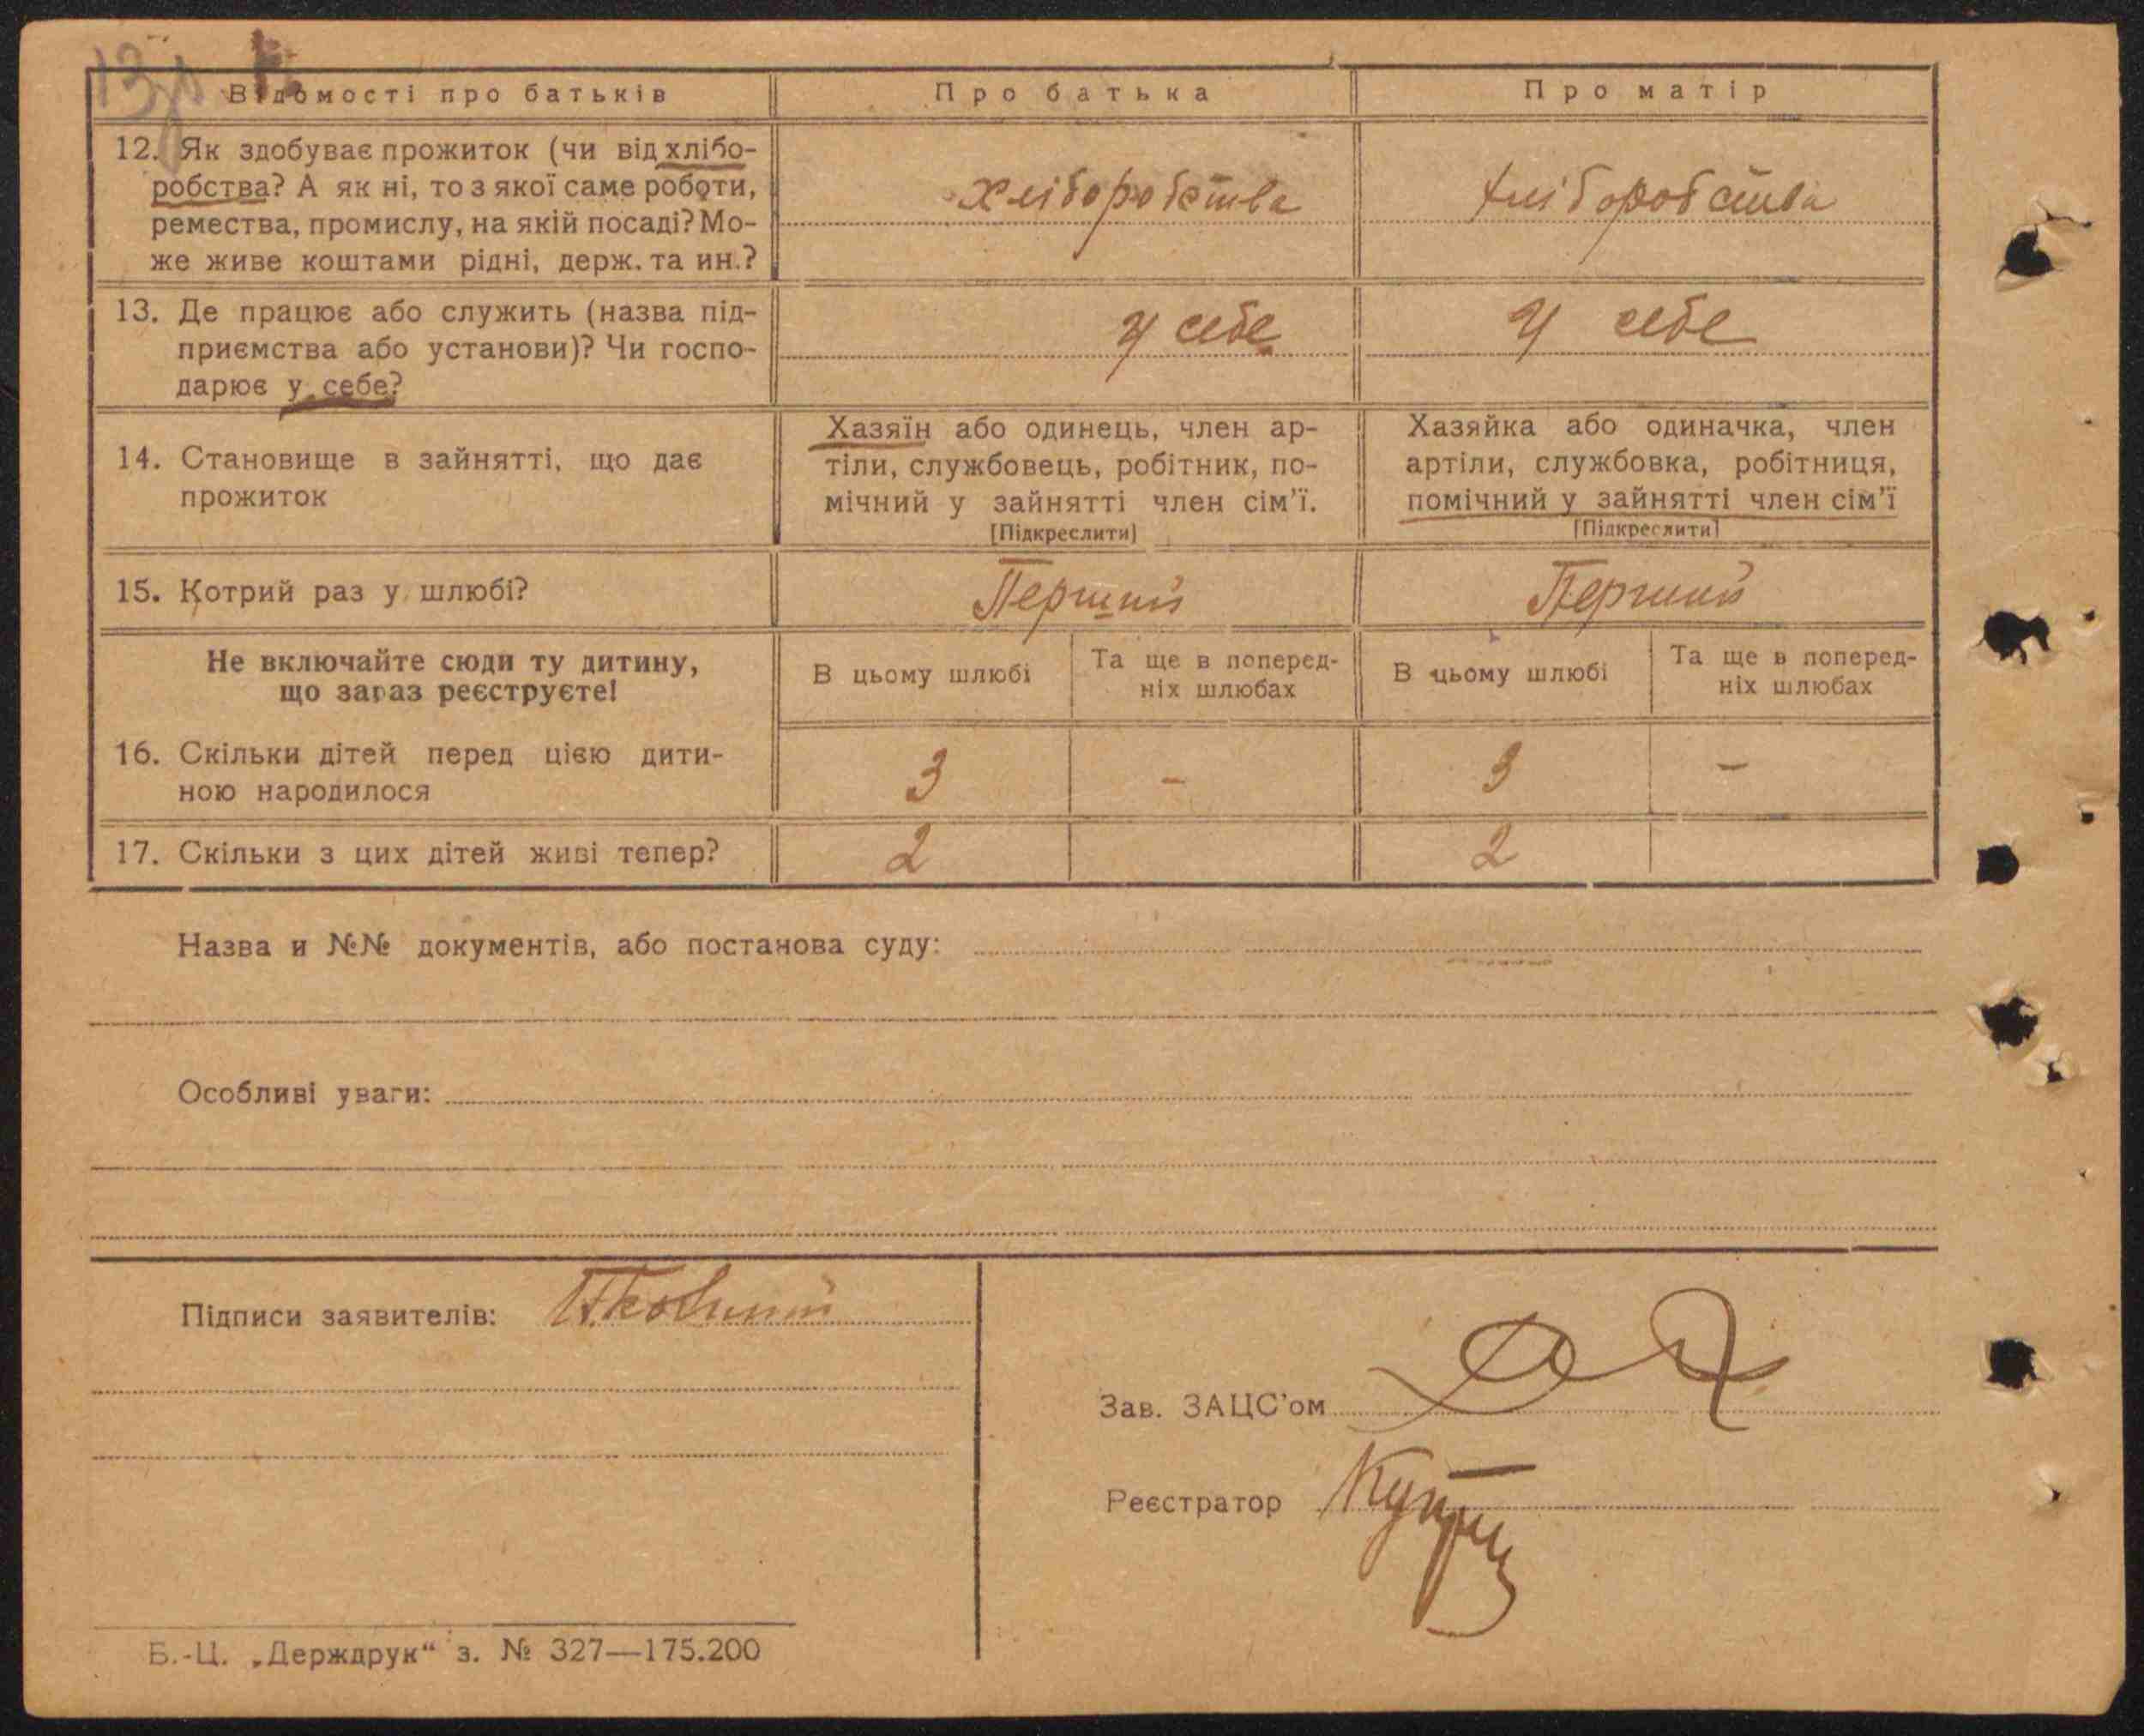 Відомості про батьків Про батька Про матір
12. Як здобуває прожиток (чи від хлібо-
робства? А як ні, то з якої саме роботи,
ремества, промислу, на якій посаді? Мо-
же живе коштами рідні, держ. та ин.?
хліборобства хліборобства
13. Де працює або служить (назва під-
приємства або установи)? Чи госпо-
дарює у себе?
у себе у себе
14. Становище в зайнятті, що дає
прожиток
Хазяїн або одинець, член ар-
тіли, службовець, робітник, по-
мічний у зайнятті член сім’ї.
[Підкреслити]
Хазяйка або одиначка, член
артіли, службовка, робітниця,
помічний у зайнятті член сім’ї
[Підкреслити]
15. Котрий раз у шлюбі? Перший Перший
Не включайте сюди ту дитину,
що зараз реєструєте!
В цьому шлюбі
Та ще в поперед-
ніх шлюбах
В цьому шлюбі
Та ще в поперед-
ніх шлюбах
16. Скільки дітей перед цією дити-
ною народилося
3 - 3 -
17. Скільки з цих дітей живі тепер? 2 2
Назва и №№ документів, або постанова суду:
Особливі уваги:
Підписи заявителів:
Зав. ЗАЦС’ом
Реєстратор
Б.-Ц. „Держдрук“ з. № 327—175.200